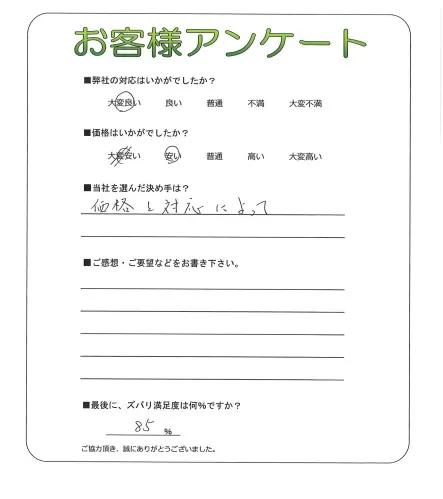 お客様アンケート
■弊社の対応はいかがでしたか？
大変良い 良い 普通 不満 大変不満
■価格はいかがでしたか？
大変安い 安い 普通 高い 大変高い
■当社を選んだ決め手は？
価格と対応によって
■ご感想・ご要望などをお書き下さい。
■最後に、ズバリ満足度は何％ですか？
85 ％
ご協力頂き、誠にありがとうございました。